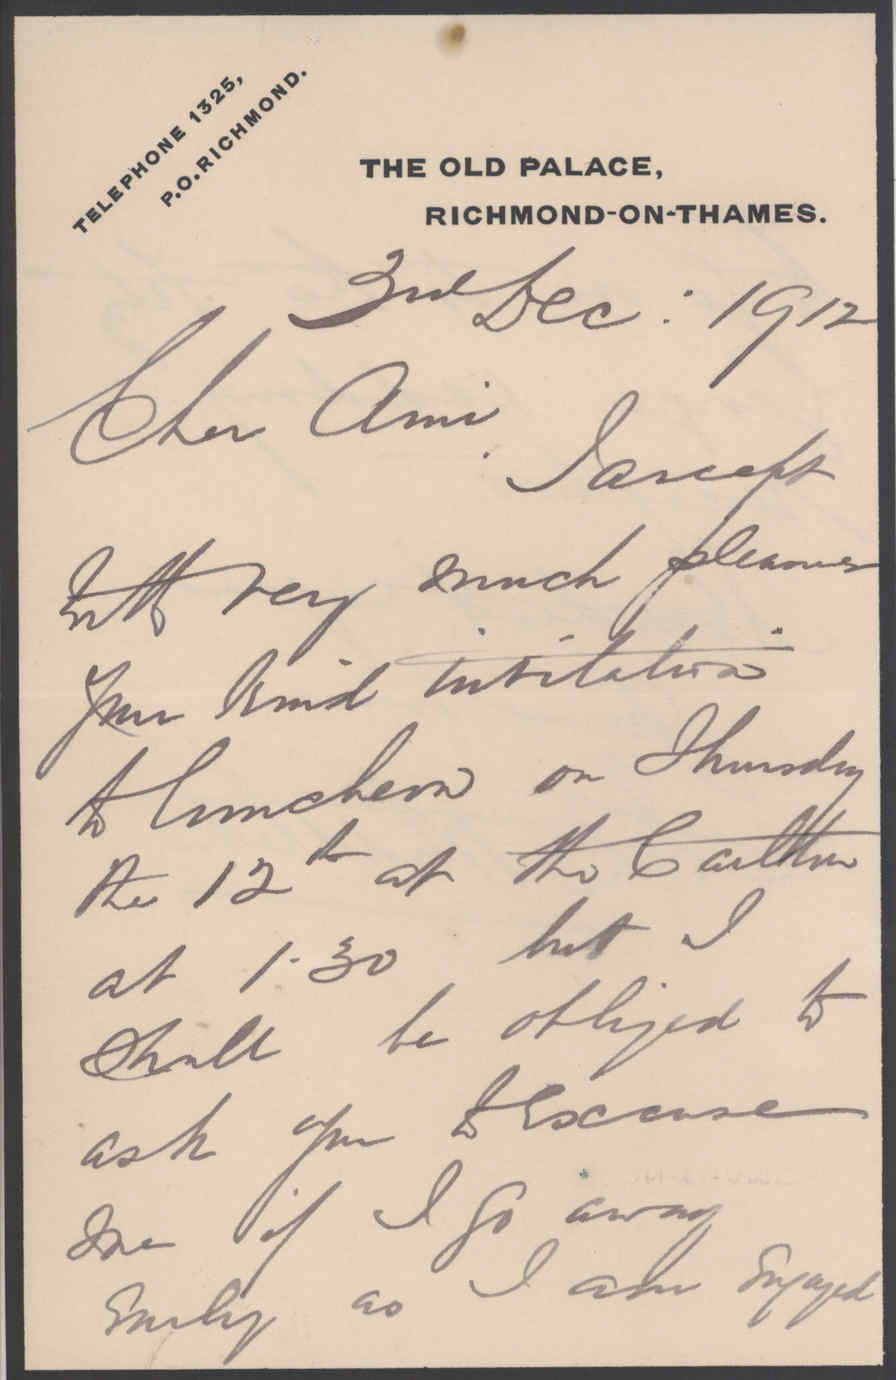 TELEPHONE 1325,
P.O. RICHMOND.
THE OLD PALACE,
RICHMOND-ON-THAMES.
3rd Dec: 1912
Cher Ami.
I accept
with very much pleasure
your kind invitation
to luncheon on Thursday
the 12th at the Carlton
at 1.30 but I
shall be obliged to
ask you to excuse
me if I go away
early as I am engaged